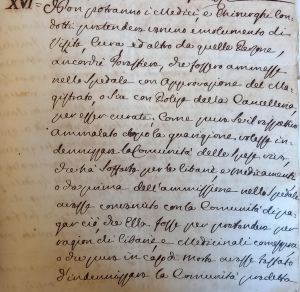 XVI = Non potranno i Medici e Chirurghi Con-
dotti pretendere veruno emolumento di
Visite, Cura ed altro da quelle Persone,
ancorchè forastiere, che fossero ammesse
nello Spedale con Approvazione del Ma-
gistrato, o sia con Polize della Cancelleria
per esser curate; Come pure se il rispettivo
ammalato dopo la guarigione, volesse in-
dennizzare la Comunità delle spese, 
che ha sofferto per le cibarie e medicamenti
o che prima dell'ammissione nello Spedale
avesse convenuto con la Comunità di pa-
gar ciò che Ella fosse per pretendere per
ragion di cibarie e Medicinali
o che pure in caso di morte avesse fattto
d'indennizzare la Comunità predetta